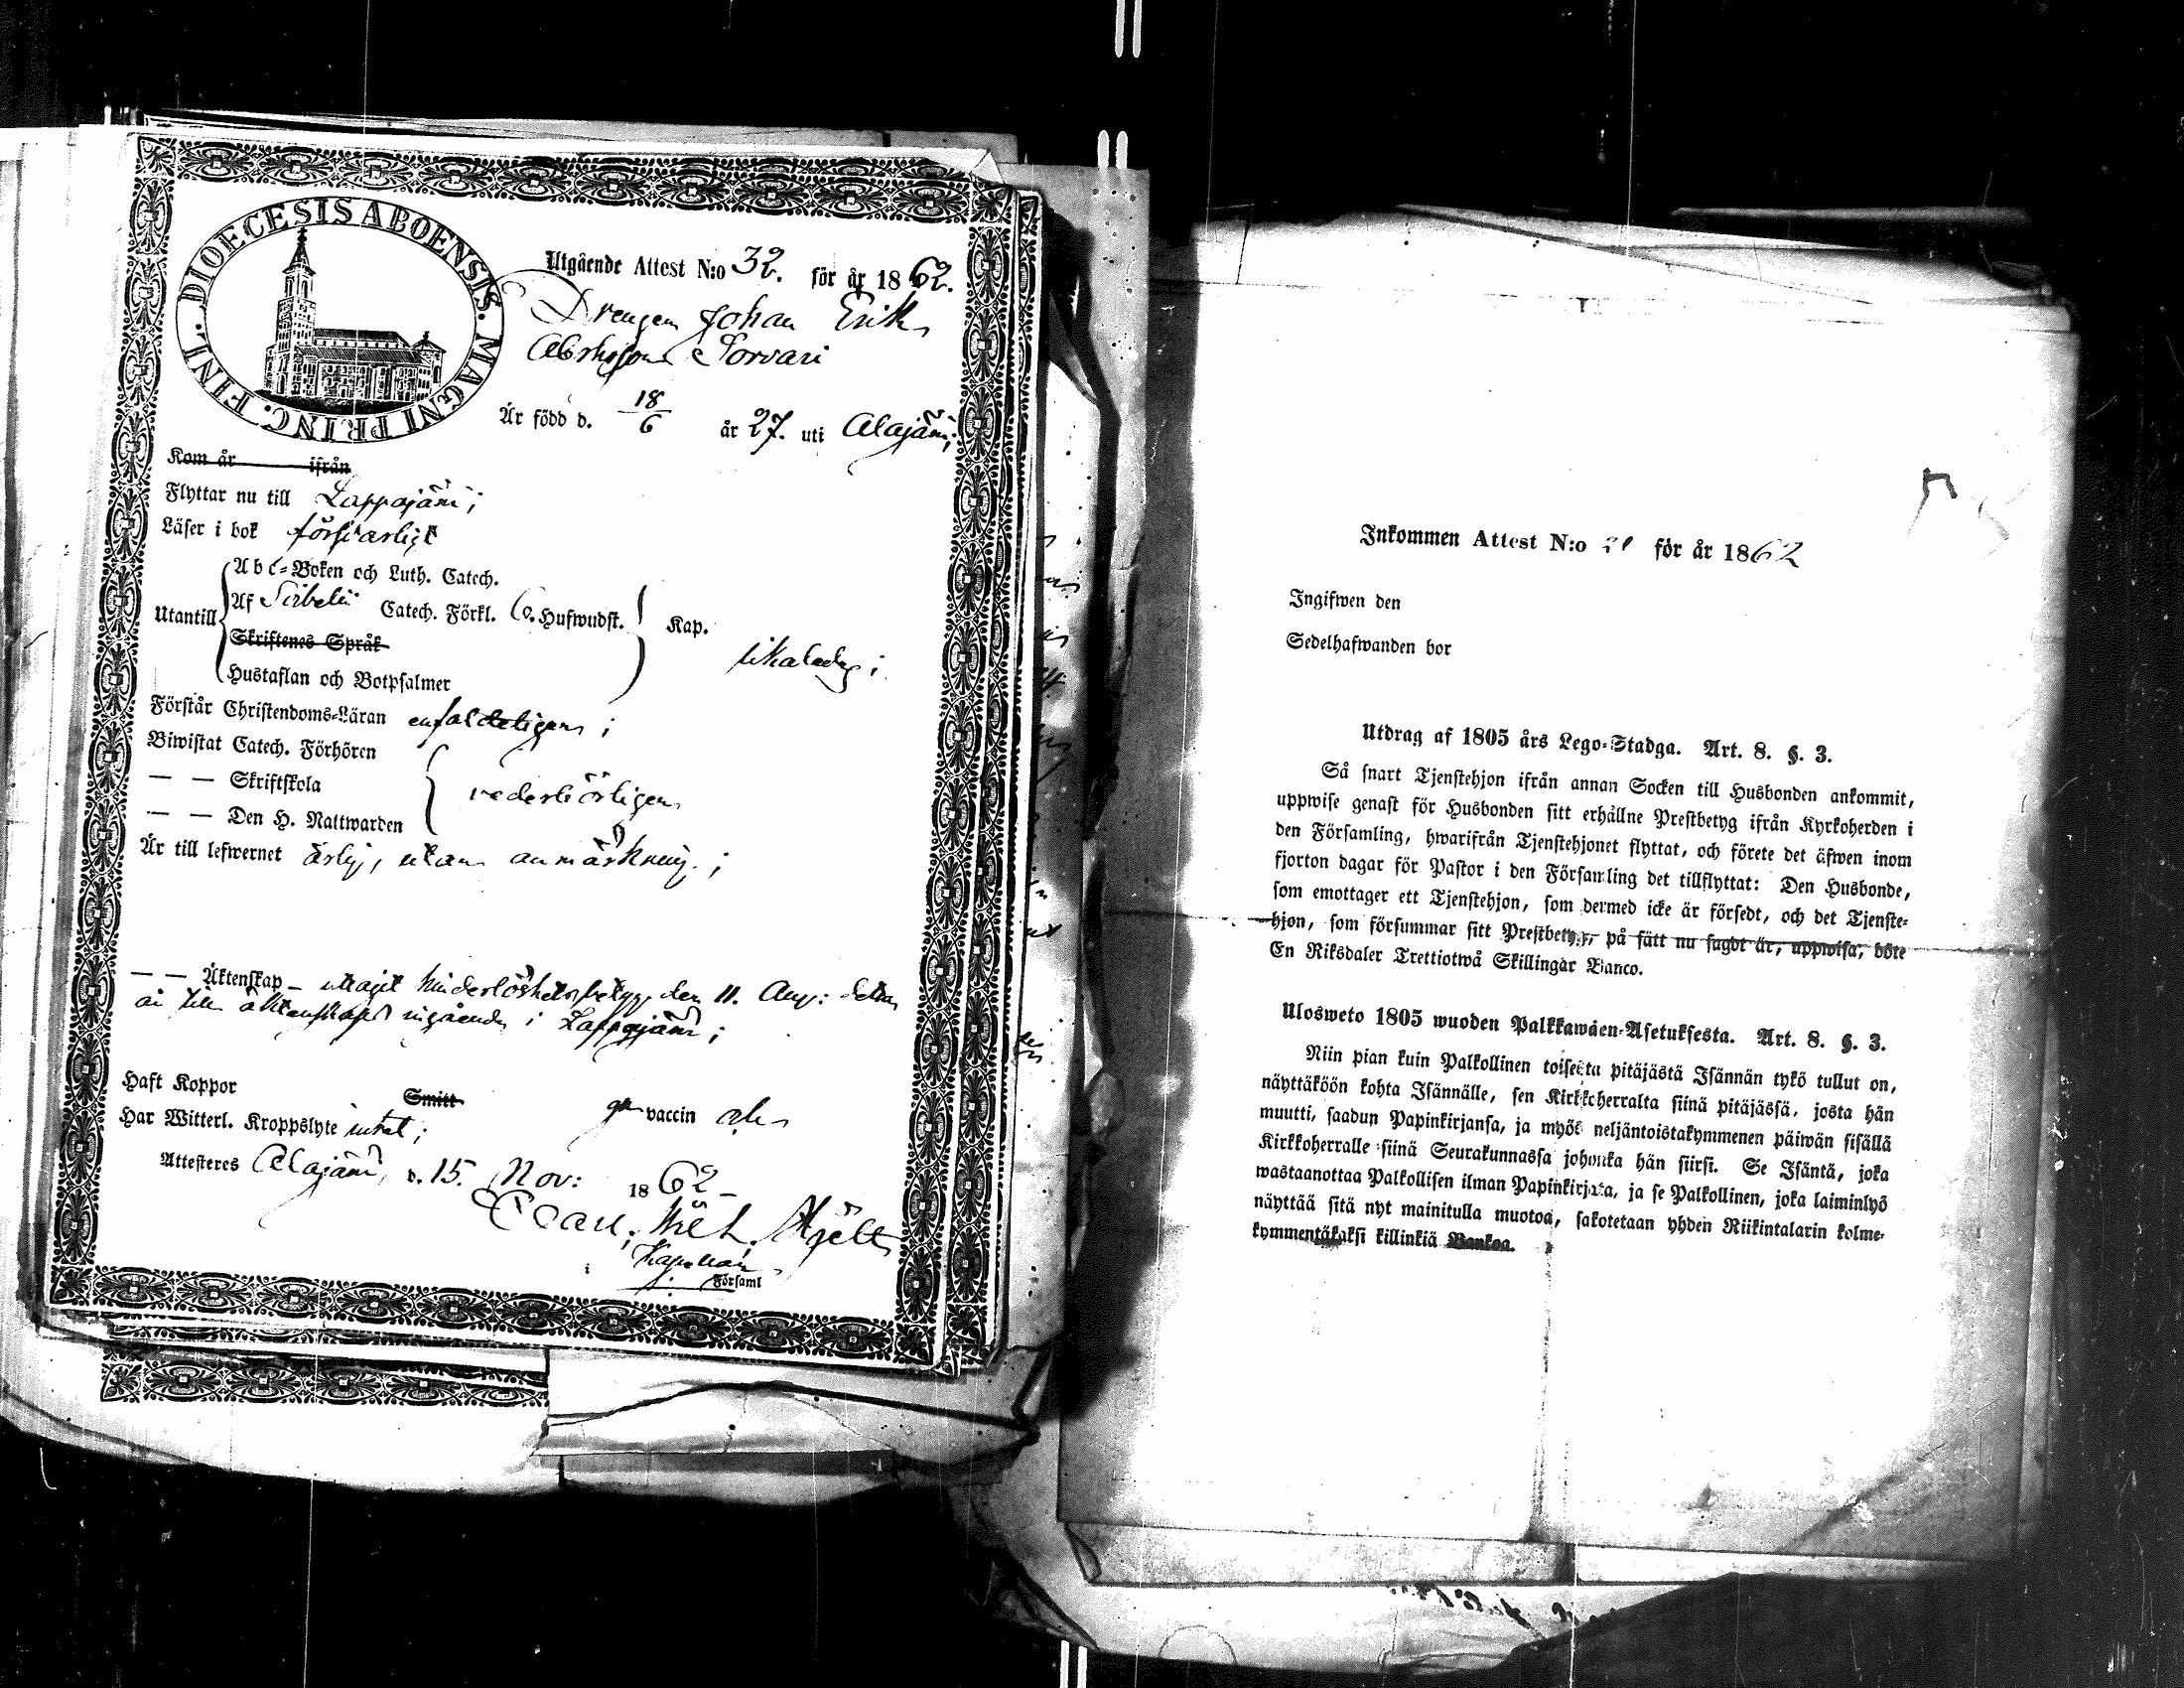 DIOECESIS ABOENSIS. MAGNI PRINC. FINL.
Utgående Attest N:o 32. för år 1862.
Drengen Johan Erik
Abrhsson Sorvari
Är född d. 18/6 år 27. uti Alajärvi;
Kom år ifrån
Flyttar nu till Lappajärvi;
Läser i bok försvarligt
Utantill
Abc-Boken och Luth. Catech.
Af Sirbelii Catech. Förkl. 6. Hufwudst. Kap.
Skriftenes Språk
likaledes;
Hustaflan och Botpsalmer
Förstår Christendoms-Läran enfaldeligen;
Biwistat Catech. Förhören
— — Skriftskola
vederbörligen
— — Den H. Nattwarden
Är till lefwernet ärlig, utan anmärkning;
— — Äktenskap – uttagit hinderlöshetsbetyg den 11. Aug: detta
år till äktenskaps ingående i Lappajärvi;
Haft Koppor Smitt vaccin
Har Witterl. Kroppslyte intet;
Attesteres Alajärvi, d. 15. Nov: 1862 –
Carl. Wilh. Hjelt
Kapellan
i Församl
Inkommen Attest N:o för år 1862
Ingifwen den
Sedelhafwanden bor
Utdrag af 1805 års Lego-Stadga. Art. 8. §. 3.
Så snart Tjenstehjon ifrån annan Socken till Husbonden ankommit,
uppwise genast för Husbonden sitt erhållne Prestbetyg ifrån Kyrkoherden i
den Församling, hwarifrån Tjenstehjonet flyttat, och förete det äfwen inom
fjorton dagar för Pastor i den Församling det tillflyttat: Den Husbonde,
som emottager ett Tjenstehjon, som dermed icke är försedt, och det Tjenste-
hjon, som försummar sitt Prestbetyg, på sätt nu sagdt är, uppwisa, böte
En Riksdaler Trettiotwå Skillingar Banco.
Ulosweto 1805 wuoden Palkkawäen-Asetuksesta. Art. 8. §. 3.
Niin pian kuin Palkollinen toisesta pitäjästä Isännän tykö tullut on,
näyttäköön kohta Isännälle, sen Kirkkoherralta siinä pitäjässä, josta hän
muutti, saadun Papinkirjansa, ja myös neljäntoistakymmenen päiwän sisällä
Kirkkoherralle siinä Seurakunnassa johonka hän siirsi. Se Isäntä, joka
wastaanottaa Palkollisen ilman Papinkirjata, ja se Palkollinen, joka laiminlyö
näyttää sitä nyt mainitulla muotoa, sakotetaan yhden Riikintalarin kolme-
kymmentäkaksi killinkiä Bankoa.